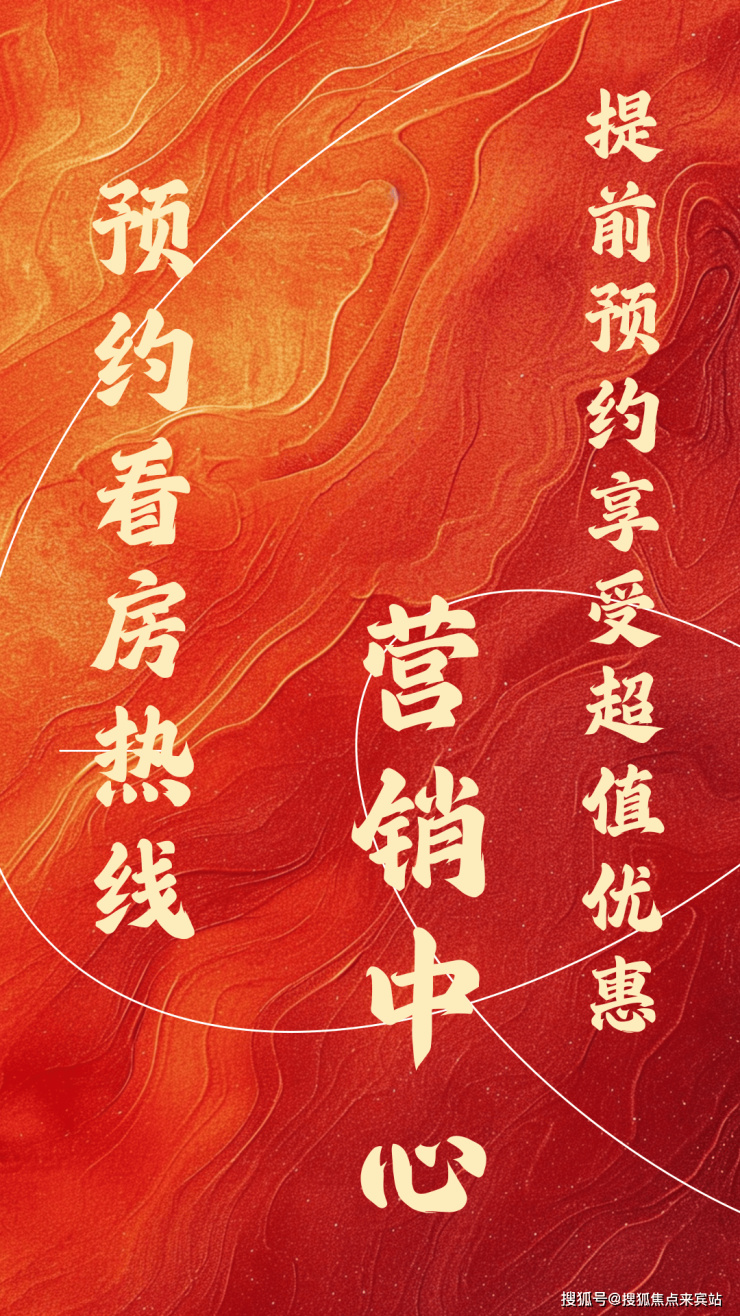 提前预约享受超值优惠
营销中心
预约看房热线
搜狐号@搜狐焦点来宾站